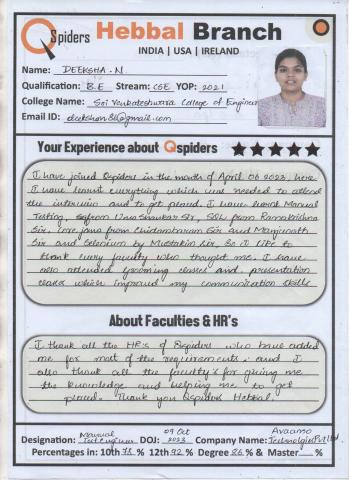 QSpiders Hebbal Branch
INDIA | USA | IRELAND
Name: DEEKSHA.N
Qualification: B.E Stream: CSE YOP: 2021
College Name: Sri Venkateshwara College of Engineer
Email ID: @gmail.com
Your Experience about Qspiders
I have joined Qspiders in the month of April 06 2023, here
I have learnt everything which was needed to attend
the interview and to get placed. I have learnt Manual
Testing, from Uma Shankar Sir, SQL from Ramakrishna
Sir, core java from Chidambaram Sir and Manjunath
Sir and Selenium by Mustakin Sir, So I like to
thank every faculty who thought me. I have
also attended grooming classes and presentation
classes which improved my communication skills
About Faculties & HR's
I thank all the HR's of Qspiders who have added
me for most of the requirements. and I
also thank all the faculty's for giving me
the knowledge and helping me to get
placed. Thank you Qspiders Hebbal.
Designation: Manual Test engineer DOJ: 09 Oct 2023 Company Name: Avaamo Technolgies Pvt Ltd
Percentages in: 10th 78 % 12th 92 % Degree 86 % & Master %